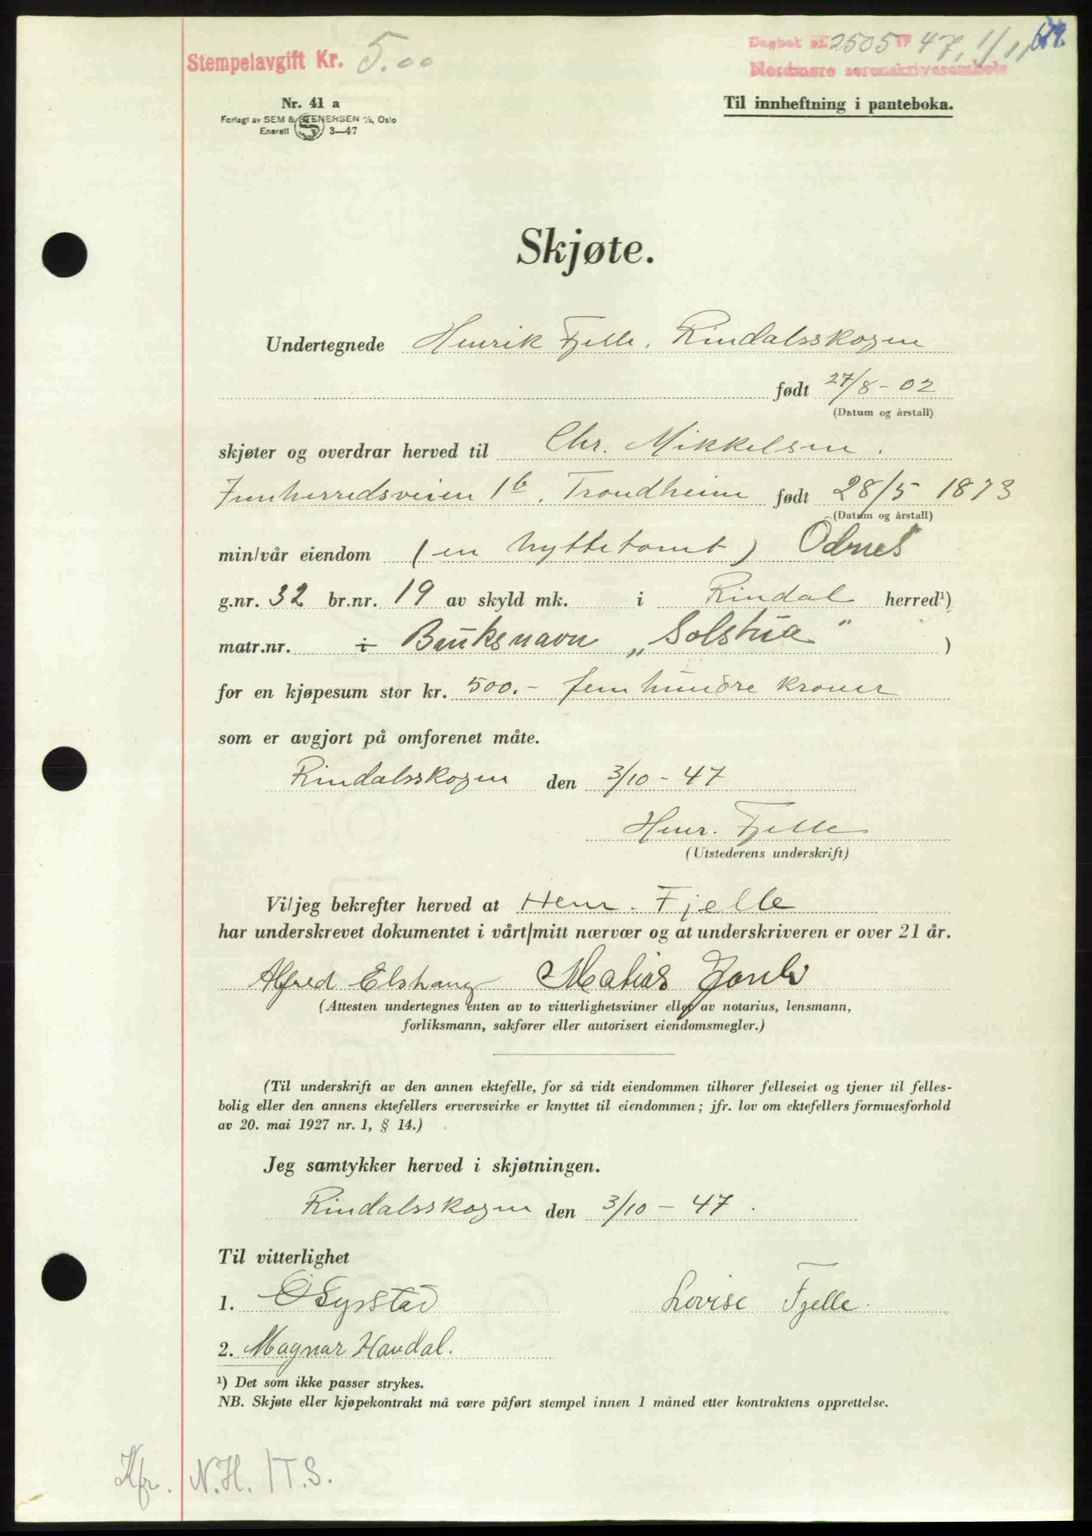 Stempelavgift Kr. 5.00
Dagbok nr. 2505 19 47, 1/11
Nordmøre sorenskriverembete
Nr. 41 a
Forlagt av SEM & STENERSEN A/S, Oslo
Enerett 3—47
Til innheftning i panteboka.
Skjøte.
Undertegnede Henrik Fjelle, Rindalsskogen
født 27/8 - 02
(Datum og årstall)
skjøter og overdrar herved til Chr. Mikkelsen.
Innherredsveien 1b, Trondheim født 28/5 1873
(Datum og årstall)
min/vår eiendom (en hyttetomt) Odnes
g.nr. 32 br.nr. 19 av skyld mk. i Rindal herred¹)
matr.nr. i Bruksnavn „Solstua" )
for en kjøpesum stor kr. 500.- fem hundre kroner
som er avgjort på omforenet måte.
Rindalsskogen den 3/10 - 47
Henr. Fjelle
(Utstederens underskrift)
Vi/jeg bekrefter herved at Henr. Fjelle
har underskrevet dokumentet i vårt/mitt nærvær og at underskriveren er over 21 år.
Alfred Elshaug Matias
(Attesten undertegnes enten av to vitterlighetsvitner eller av notarius, lensmann,
forliksmann, sakfører eller autorisert eiendomsmegler.)
(Til underskrift av den annen ektefelle, for så vidt eiendommen tilhører felleseiet og tjener til felles-
bolig eller den annens ektefellers ervervsvirke er knyttet til eiendommen; jfr. lov om ektefellers formuesforhold
av 20. mai 1927 nr. 1, § 14.)
Jeg samtykker herved i skjøtningen.
Rindalsskogen den 3/10 - 47.
Til vitterlighet
1. O Syrstad Lovise Fjelle.
2. Magnar Haudal.
¹) Det som ikke passer strykes.
NB. Skjøte eller kjøpekontrakt må være påført stempel innen 1 måned etter kontraktens opprettelse.
Kfr. N.H. / T.S.